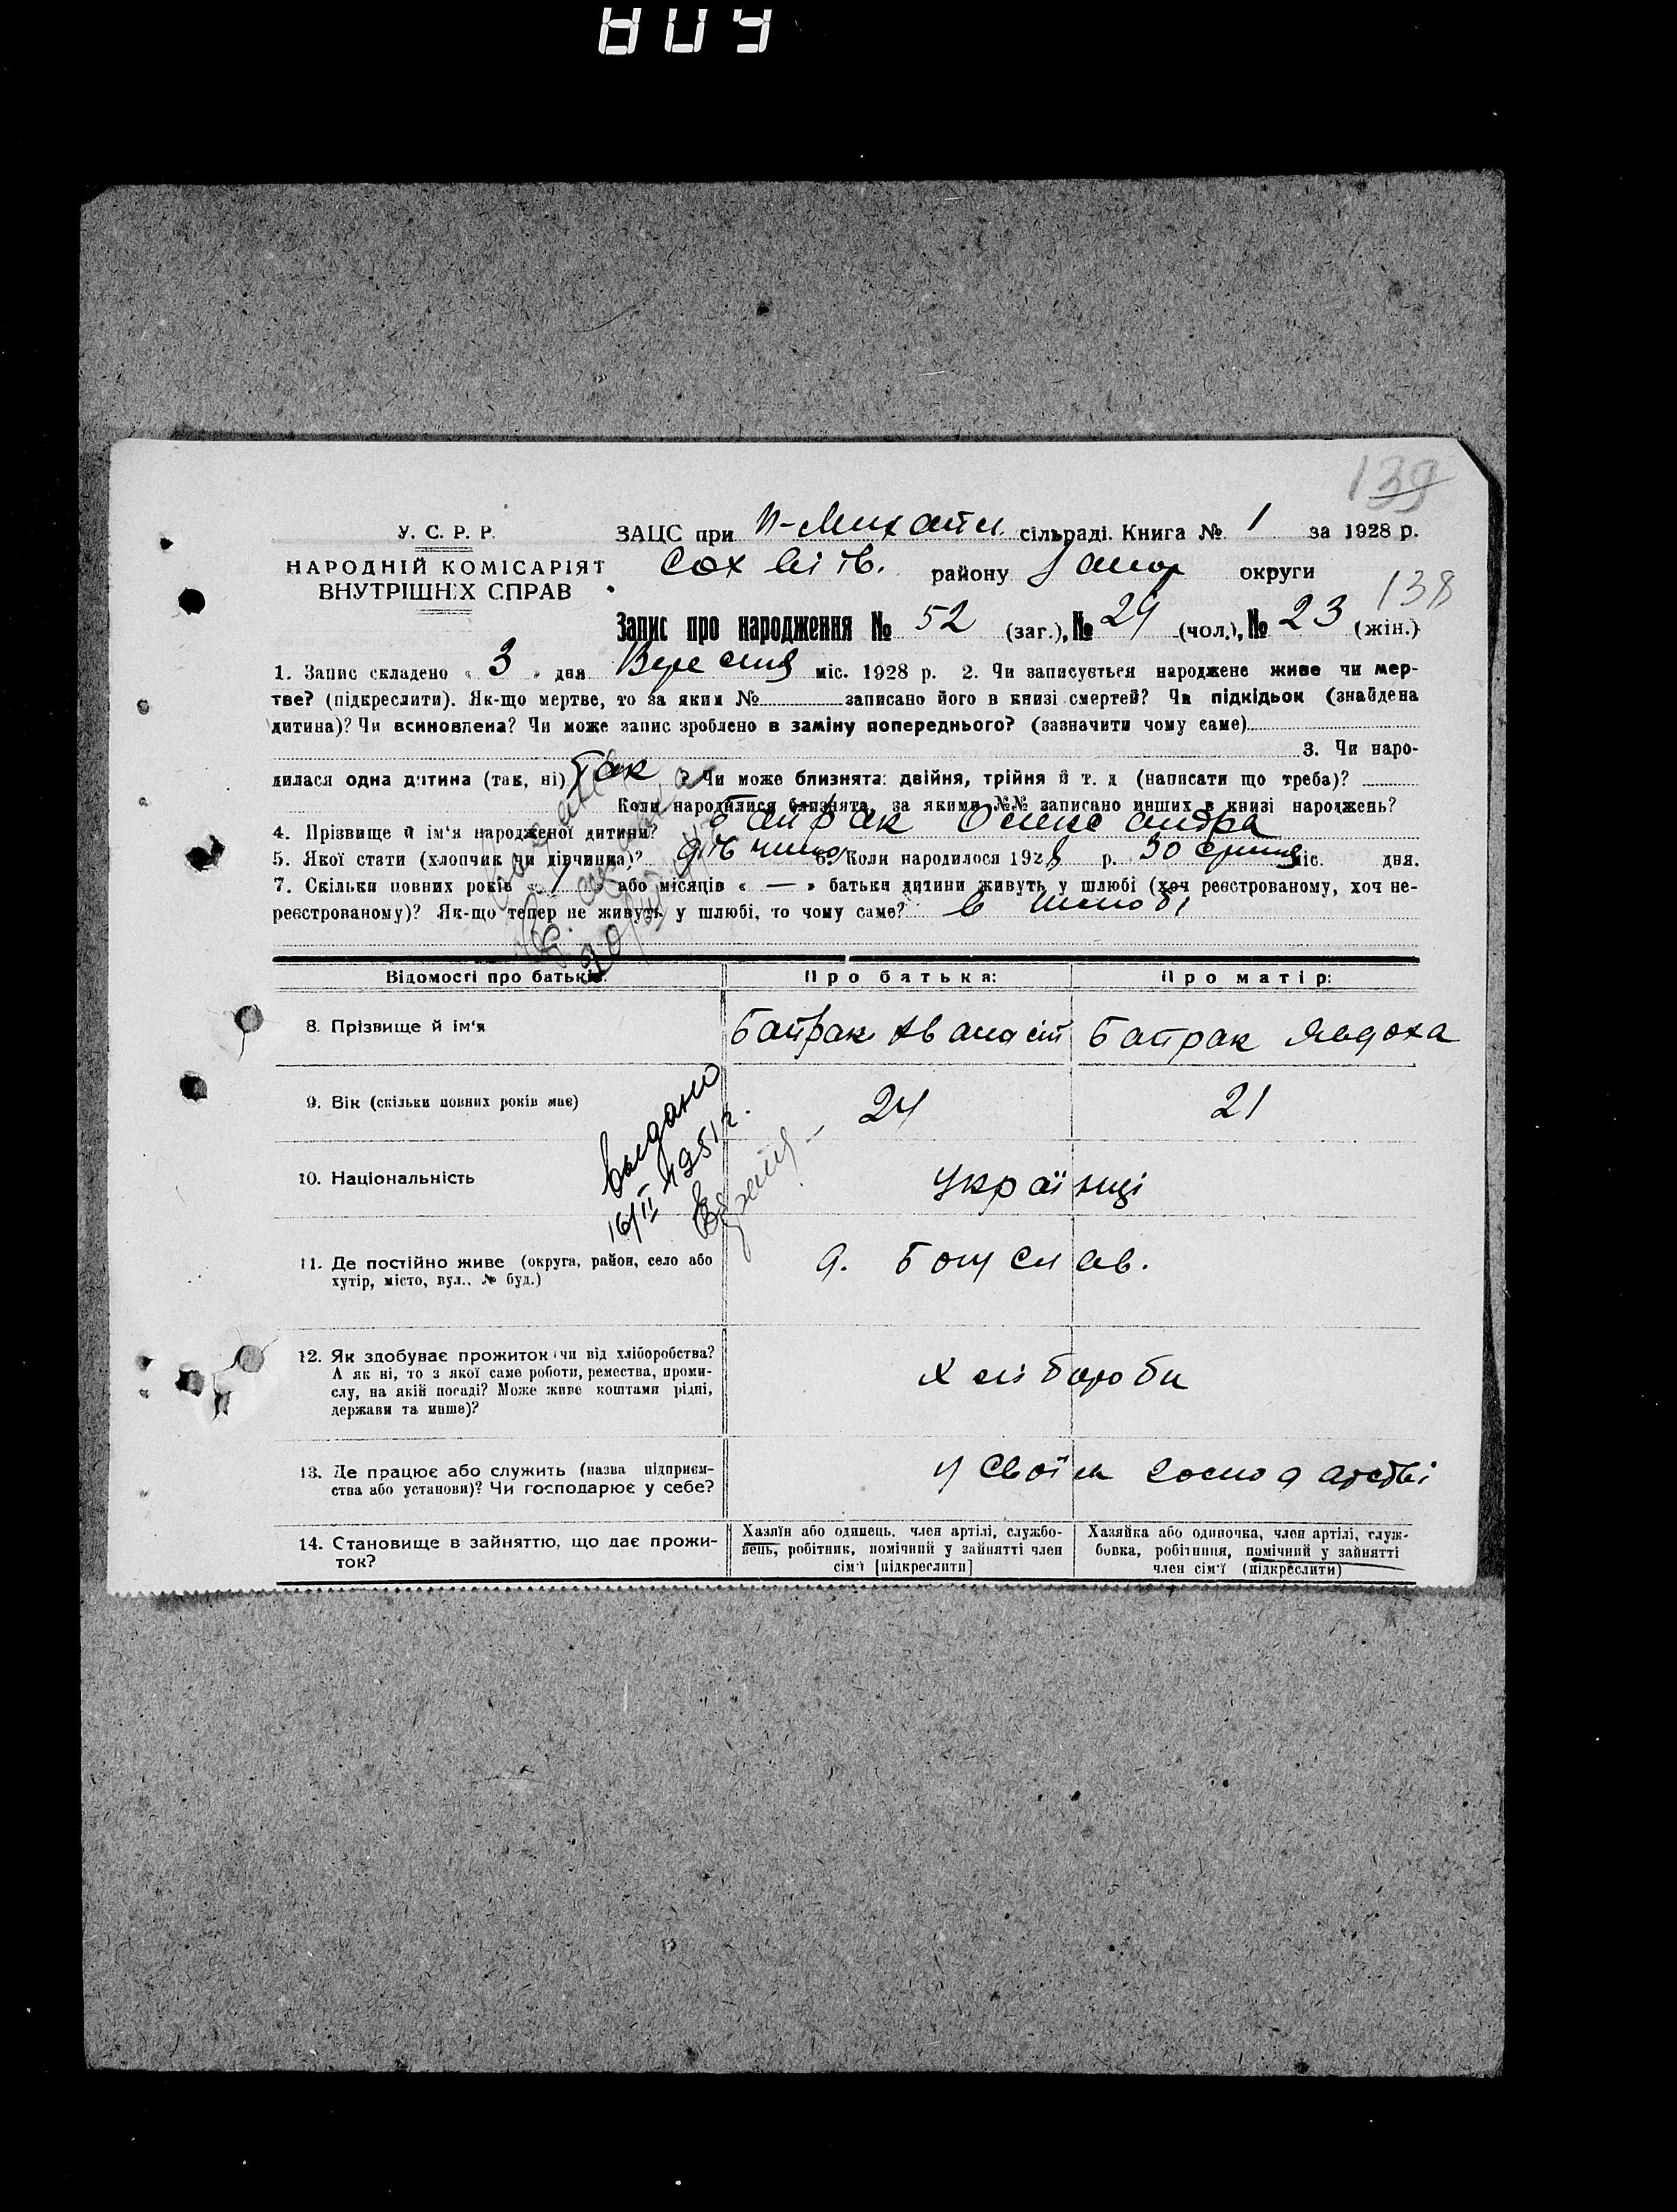 139
У. С. Р. Р.
НАРОДНІЙ КОМІСАРІЯТ
ВНУТРІШНІХ СПРАВ
ЗАЦС при Н-Михайл. сільраді. Книга № 1 за 1928 р.
району округи
138
Запис про народження № 52 (заг.), № 29 (чол.), № 23 (жін.)
1. Запис складено « 3 » дня Вересня міс. 1928 р. 2. Чи записується народжене живе чи мер-
тве? (підкреслити). Як-що мертве, то за яким № записано його в книзі смертей? Чи підкідьок (знайдена
дитина)? Чи всиновлена? Чи може запис зроблено в заміну попереднього? (зазначити чому саме)
3. Чи наро-
дилася одна дитина (так, ні) Так ? Чи може близнята: двійня, трійня й т. д (написати що треба)?
Коли народилися близнята, за якими №№ записано инших в книзі народжень?
4. Прізвище й ім'я народженої дитини? Байрак Олександра
5. Якої стати (хлопчик чи дівчинка)? дівчина 6. Коли народилося 1928 р. 30 серпня міс. дня.
7. Скільки повних років « 1 » або місяців « — » батьки дитини живуть у шлюбі (хоч реєстрованому, хоч не-
реєстрованому)? Як-що тепер не живуть у шлюбі, то чому саме? в шлюбі
Відомості про батьків: Про батька: Про матір:
8. Прізвище й ім'я Байрак Байрак Явдоха
9. Вік (скільки повних років має) 24 21
выдано
16/II 1951 г.
10. Національність Українці
11. Де постійно живе (округа, район, село або
хутір, місто, вул., № буд.)
12. Як здобуває прожиток чи від хліборобства?
А як ні, то з якої саме роботи, ремества, проми-
слу, на якій посаді? Може живе коштами рідні,
держави та инше)?
Хлібороби
13. Де працює або служить (назва підприєм-
ства або установи)? Чи господарює у себе?
У своїм господарстві
14. Становище в зайняттю, що дає прожи-
ток?
Хазяїн або одинець, член артілі, службо-
вець, робітник, помічний у зайнятті член
сім'ї [підкреслити]
Хазяйка або одиночка, член артілі, служ-
бовка, робітниця, помічний у зайнятті
член сім'ї (підкреслити)